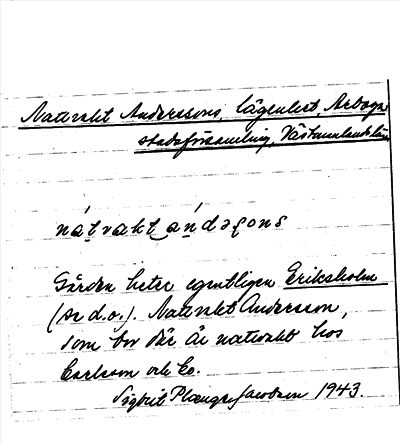 Nattvakt Anderssons, lägenhet, Arboga
stadsförsamling, Västmanlands län
nátvakt ándəʂons
Gården heter egentligen Eriksholm
(se d.o.). Nattvakt Andersson,
som bor där är nattvakt hos
Carlsson och Co.
Sigbrit Plænge Jacobson 1943.